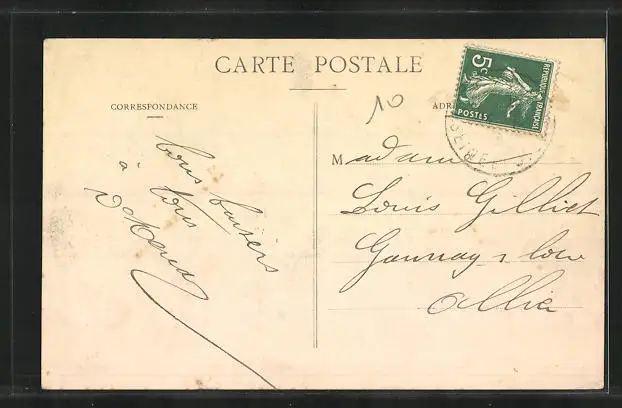 CARTE POSTALE
CORRESPONDANCE
10
5c
REPUBLIQUE FRANÇAISE
POSTES
bons baisers
à tous
Madame
Louis Gilliet
Gannay s loire
Allier